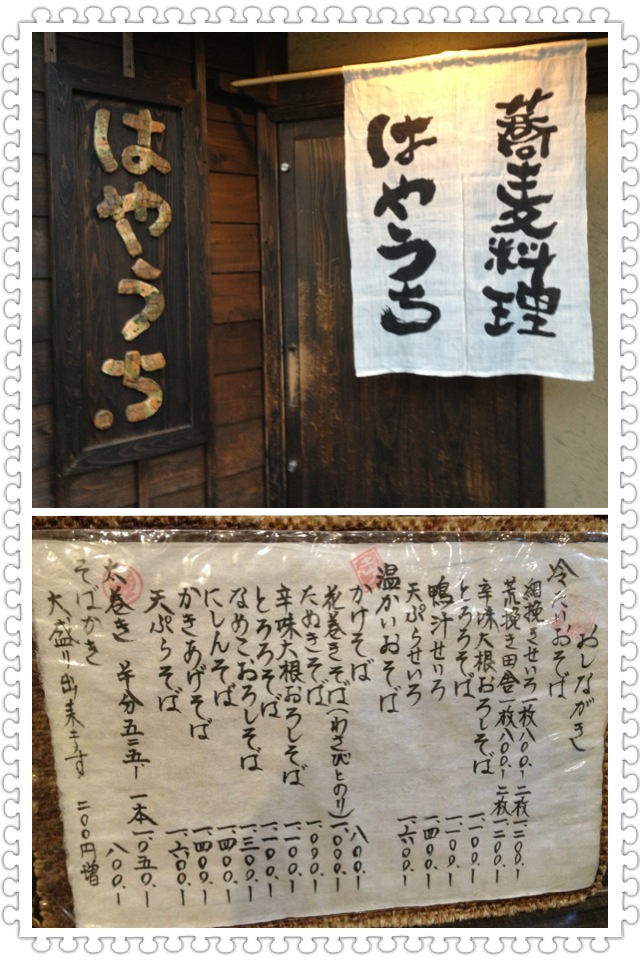 はやうち
蕎麦料理
はやうち
おしながき
冷たいおそば
細挽きせいろ 一枚八〇〇.ー 二枚一.二〇〇.ー
荒挽き田舎 一枚八〇〇.ー 二枚一.二〇〇.ー
辛味大根おろしそば 一.一〇〇.ー
とろろそば 一.一〇〇.ー
鴨汁せいろ 一.四〇〇.ー
天ぷらせいろ 一.六〇〇.ー
温かいおそば
かけそば 八〇〇.ー
花巻きそば(わさびとのり) 一.〇〇〇.ー
たぬきそば 一.〇〇〇.ー
辛味大根おろしそば 一.一〇〇.ー
とろろそば 一.二〇〇.ー
なめこおろしそば 一.三〇〇.ー
にしんそば 一.四〇〇.ー
かきあげそば 一.四〇〇.ー
天ぷらそば 一.六〇〇.ー
太巻き 半分五二五.ー 一本一.〇五〇.ー
そばかき 八〇〇.ー
大盛り出来ます 二〇〇円増